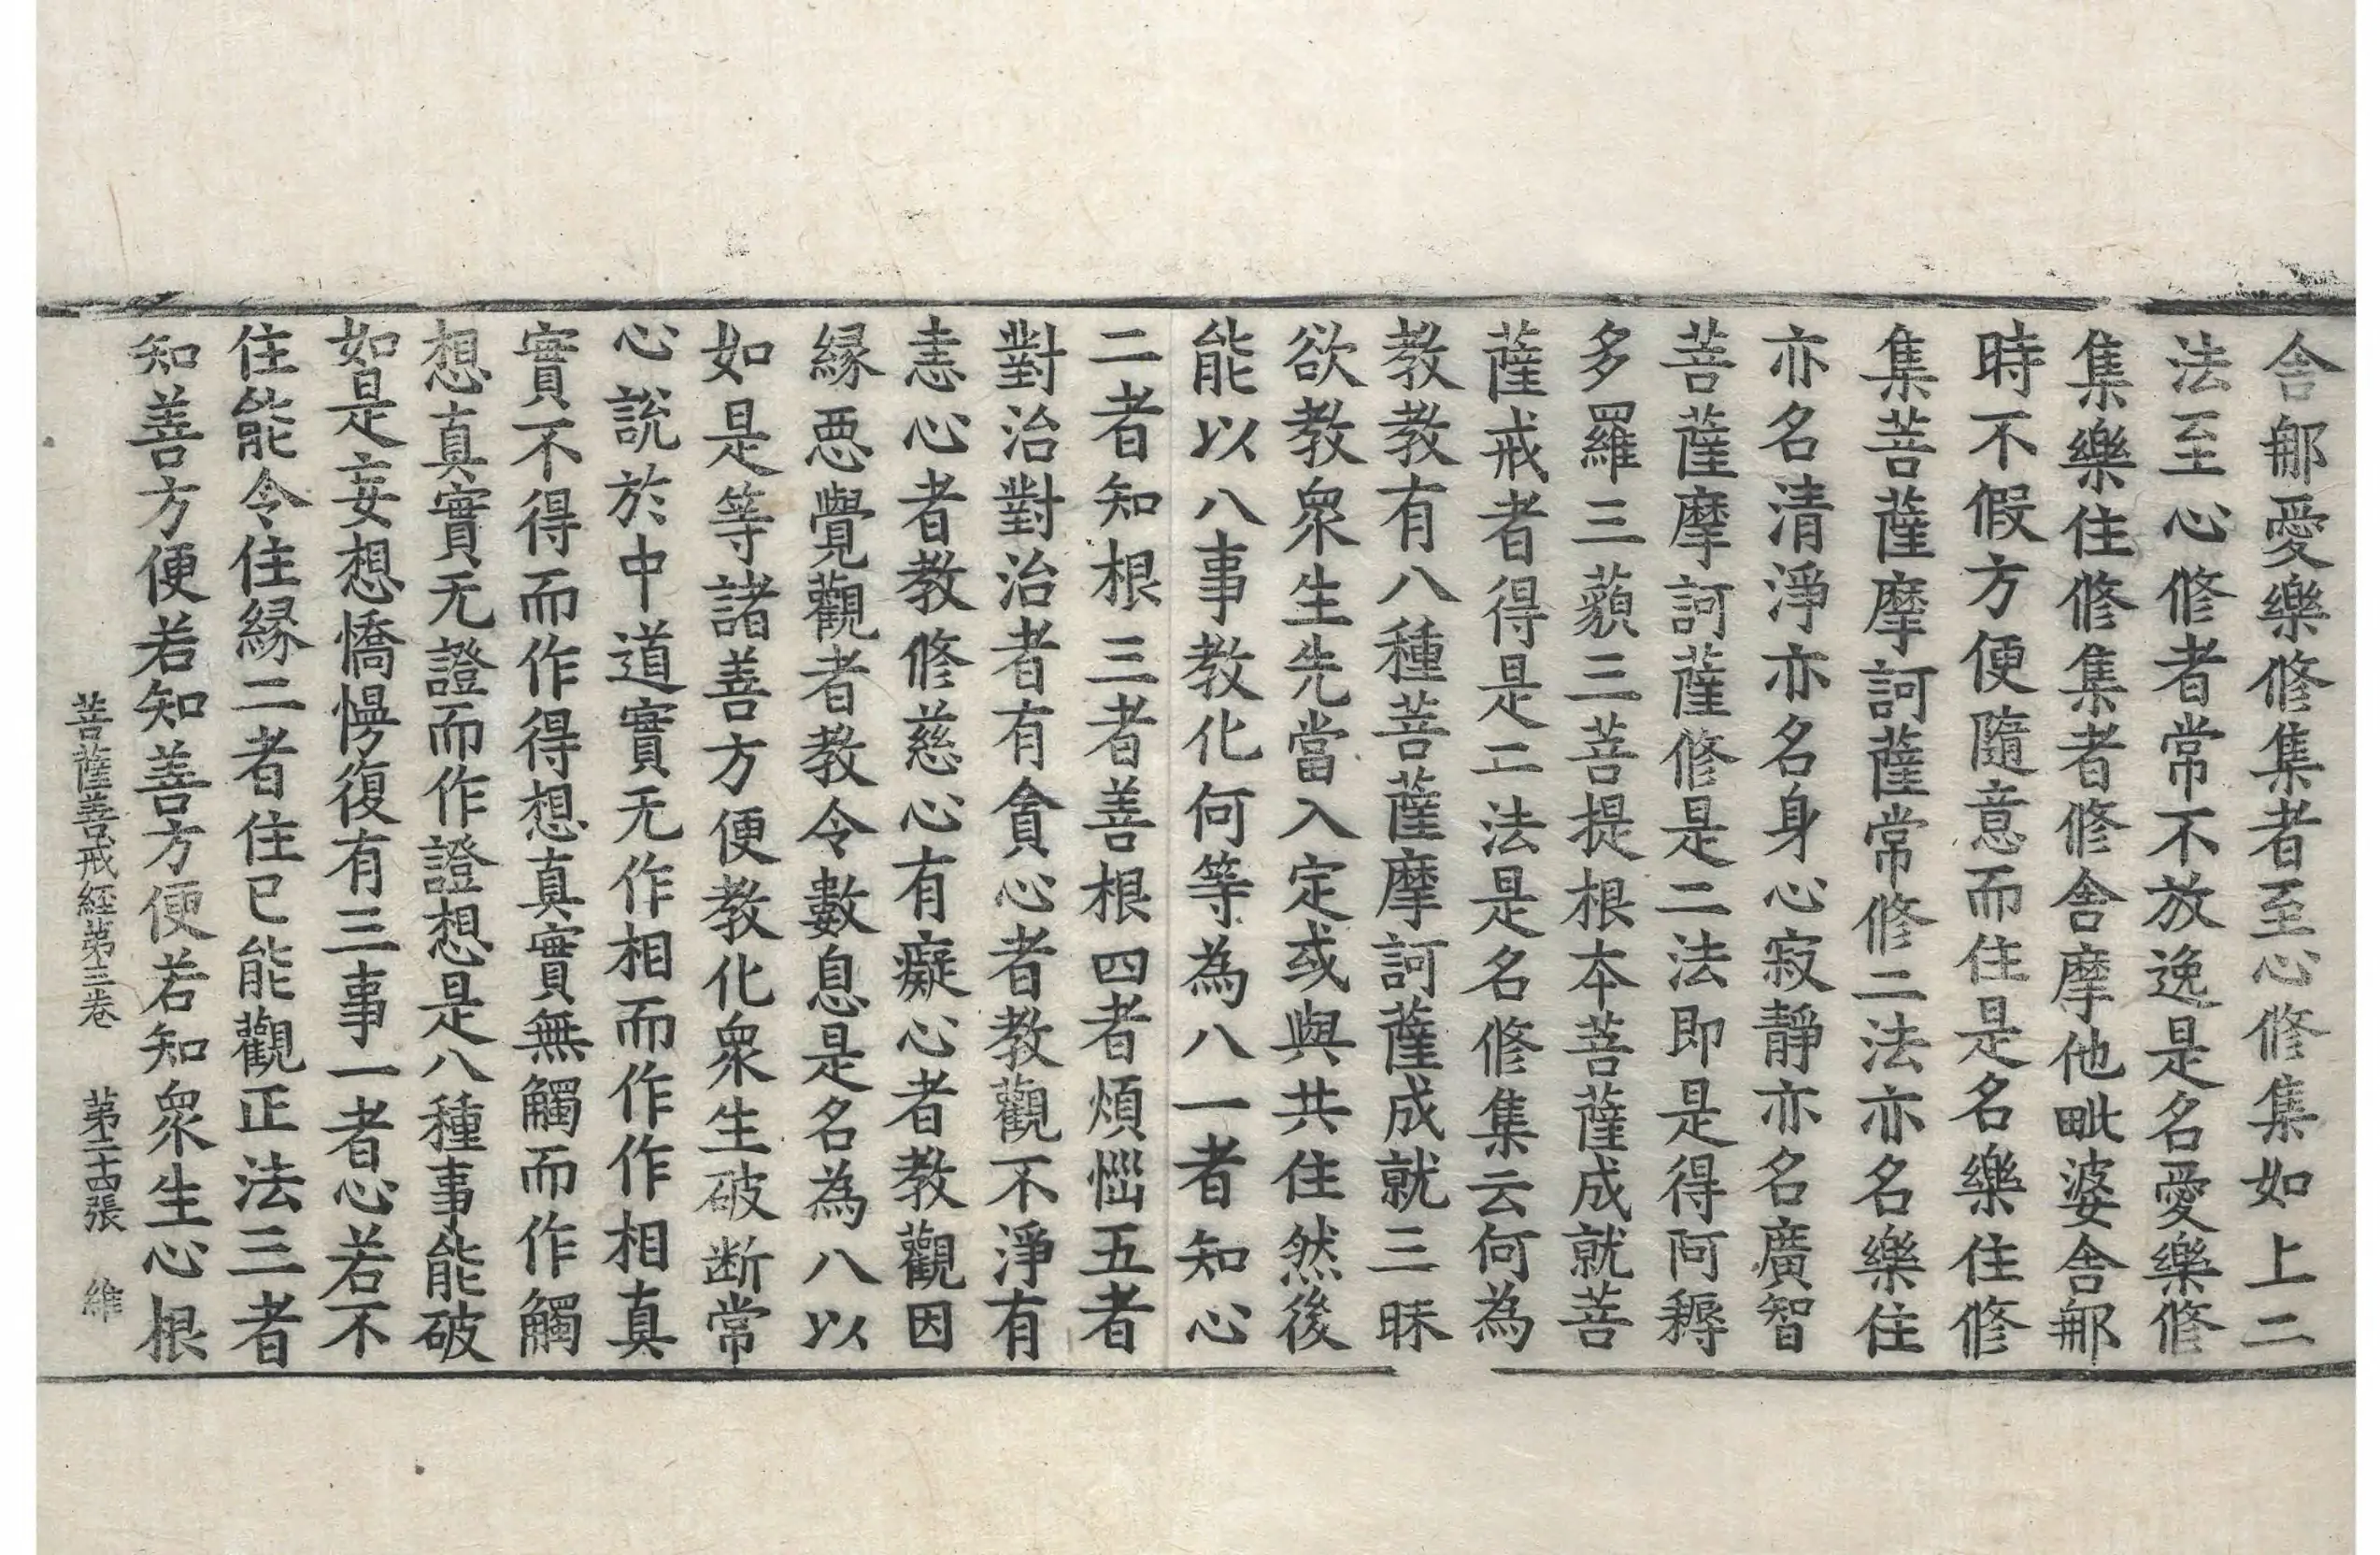 舎𨚗愛樂修集者至心修集如上二
法至心修者常不放逸是名愛樂修
集樂住修集者修舎摩他毗婆舎𨚗
時不假方便隨意而住是名樂住修
集菩薩摩訶薩常修二法亦名樂住
亦名清淨亦名身心寂靜亦名廣智
菩薩摩訶薩修是二法即是得阿耨
多羅三藐三菩提根本菩薩成就菩
薩戒者得是二法是名修集云何為
教教有八種菩薩摩訶薩成就三昧
欲教衆生先當入定或與共住然後
能以八事教化何等為八一者知心
二者知根三者善根四者煩惱五者
對治對治者有貪心者教觀不淨有
恚心者教修慈心有癡心者教觀因
緣惡覺觀者教令數息是名為八以
如是等諸善方便教化衆生破断常
心說於中道實无作相而作作相真
實不得而作得想真實無觸而作觸
想真實无證而作證想是八種事能破
如是妄想憍慢復有三事一者心若不
住能令住緣二者住已能觀正法三者
知善方便若知善方便若知衆生心根
菩薩善戒経第三卷 第二十四張 維